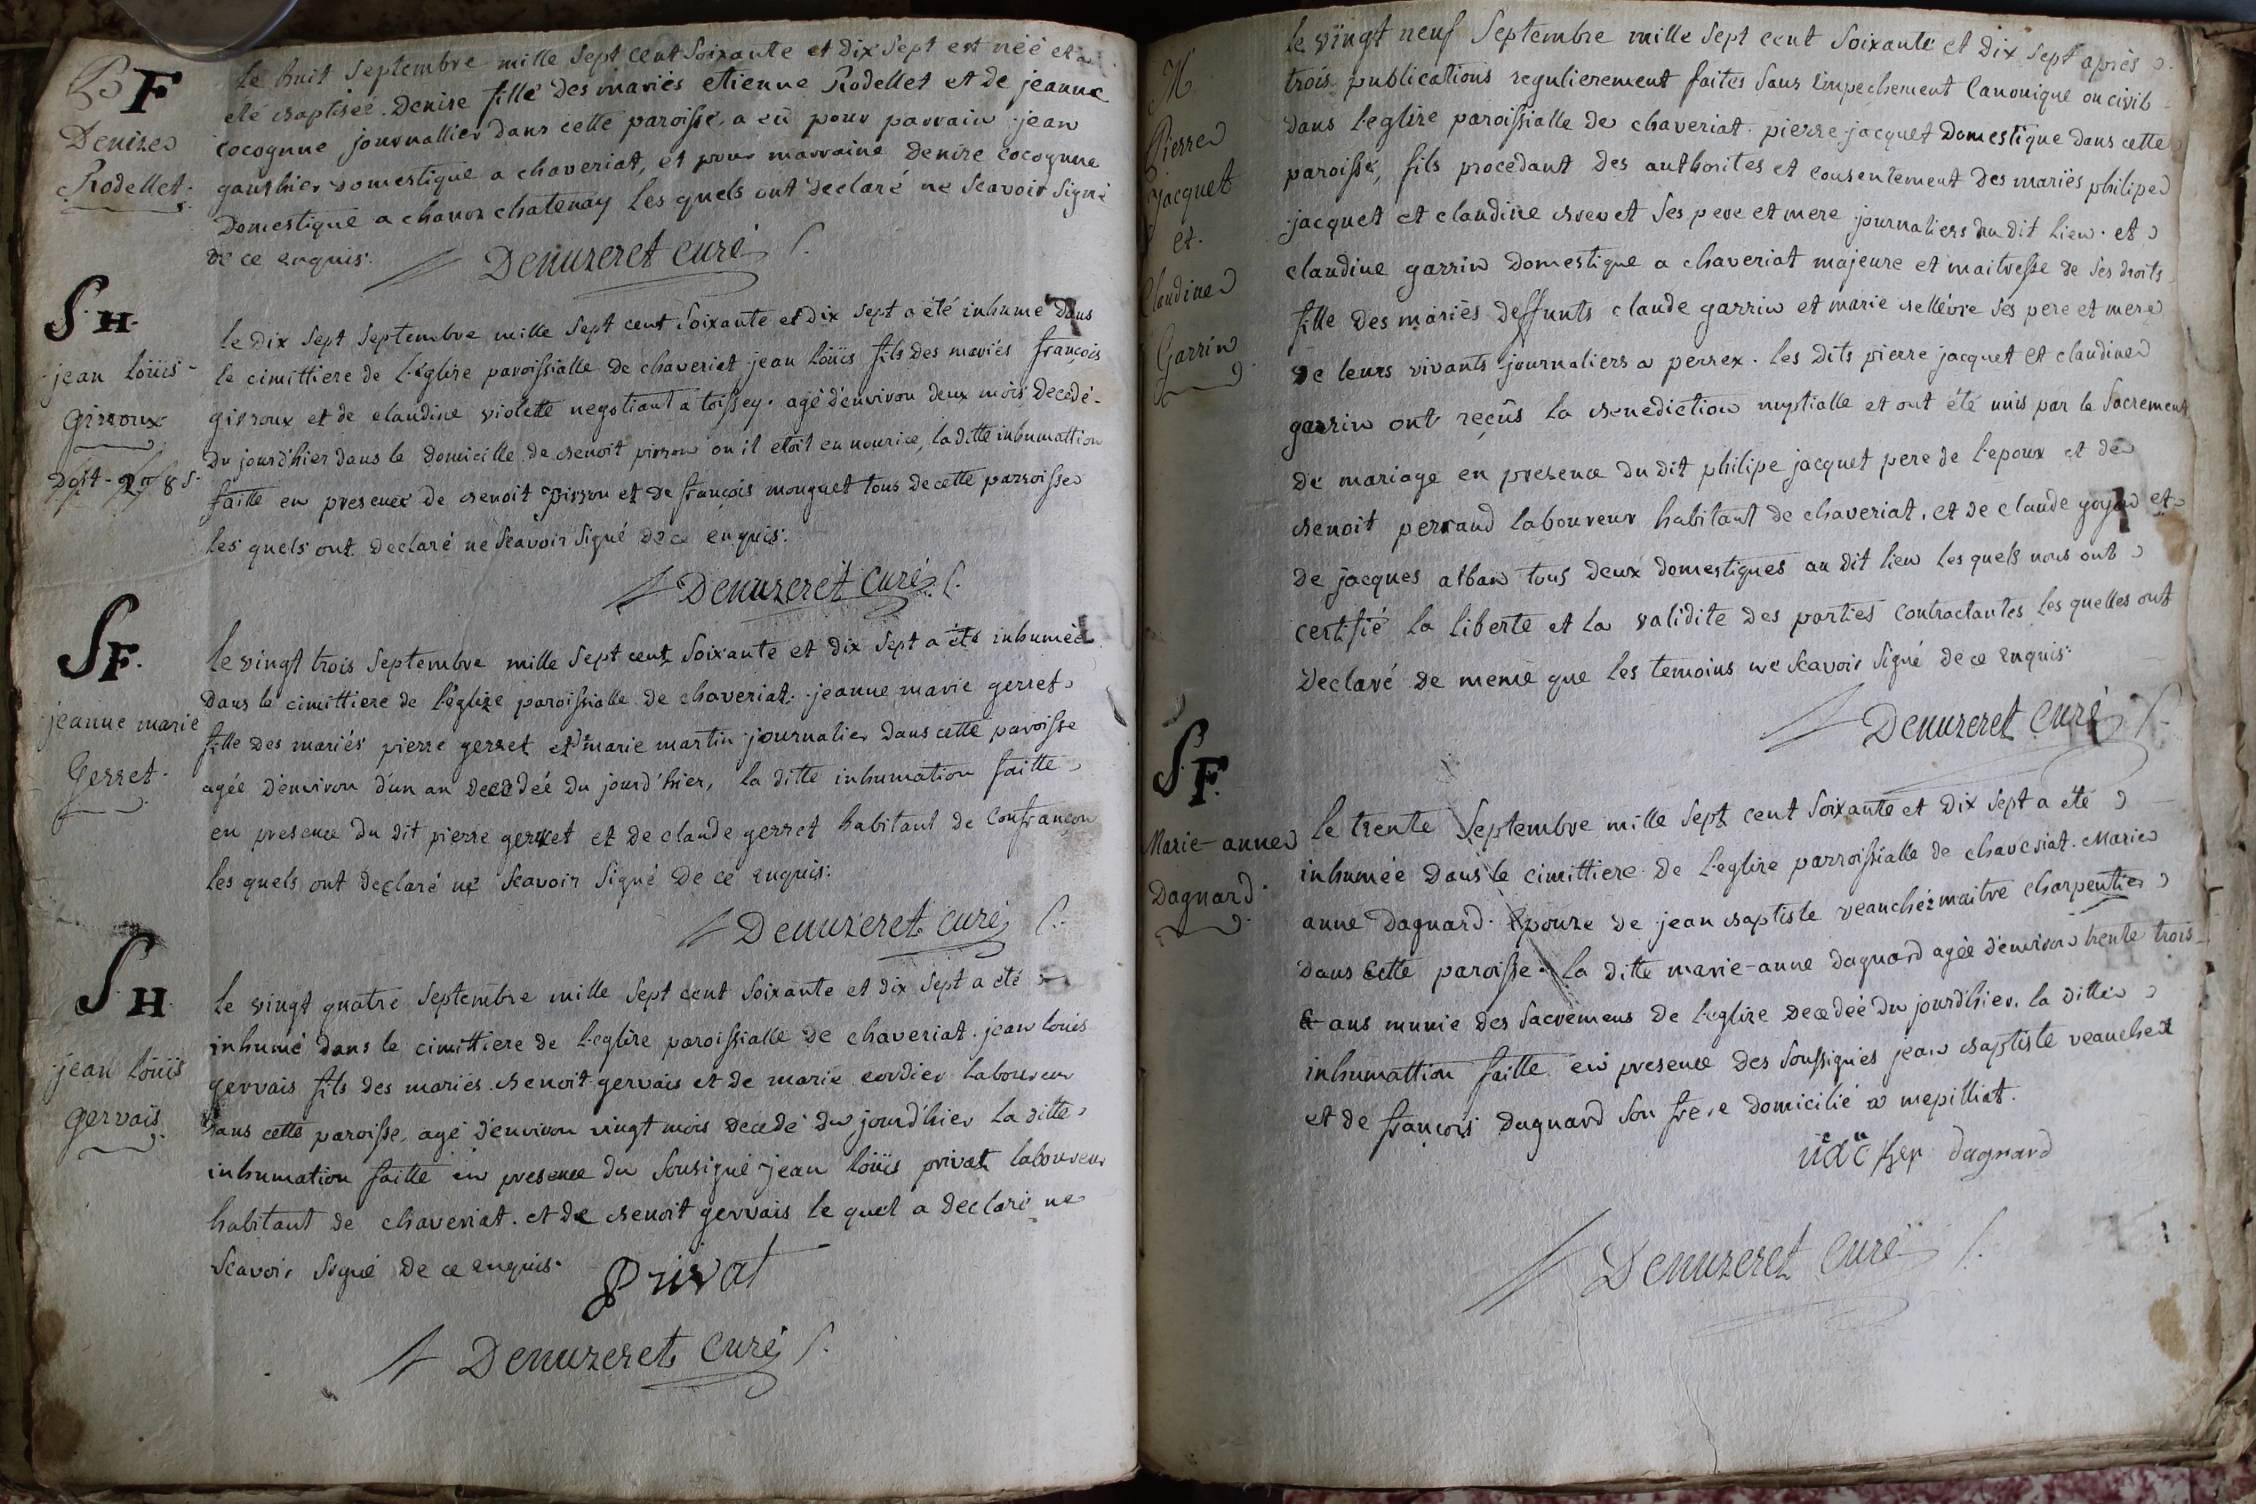 B F
Denize
Rodellet.
le huit Septembre mille Sept cent Soixante et dix Sept est néé et a
eté baptiseé. Denise fille des mariés etienne Rodellet et de jeanne
cocognne journallier dans cette paroisse, a eü pour parrain jean
gauthier domestique a chaveriat, et pour marraine Denise cocognne
Domestique a chanoz chatenay les quels ont declaré ne Scavoir Signé
de ce enquis.
Denuzeret curé
S. H.
jean loüis
girroux
le dix Sept Septembre mille Sept cent Soixante et dix Sept a été inhumé dans
le cimittiere de l'église paroissialle de chaveriat jean loüis fils des mariés françois
girroux et de claudine violette negotiant a toissey. agé d'environ deux mois decedé
du jourd'hier dans le domicille de benoit pirron ou il etoit en nourice, la ditte inhumattion
faitte en presence de benoit pirron et de françois monguet tous de cette parroisse
les quels ont declaré ne Scavoir Signé de ce enquis.
Denuzeret curé
S F.
jeanne marie
Gerret.
le vingt trois Septembre mille Sept cent Soixante et dix Sept a été inhumée
dans le cimittiere de l'églize paroissialle de chaveriat. jeanne marie gerret
fille des mariés pierre gerret et marie martin journalier dans cette paroisse
agée d'environ d'un an decedeé du jourd'hier, la ditte inhumation faitte
en presence du dit pierre gerret et de claude gerret habitant de Confrançon
les quels ont declaré ne Scavoir Signé de ce enquis.
Denuzeret curé
S. H.
jean loüis
gervais
le vingt quatre Septembre mille Sept cent Soixante et dix Sept a été
inhumé dans le cimittiere de l'eglise paroissialle de chaveriat. jean louis
gervais fils des mariés benoit gervais et de marie cordier laboureur
dans cette paroisse, agé d'environ vingt mois decedé du jourd'hier la ditte
inhumation faitte en presence du Sousigné jean loüis privat laboureur
habitant de chaveriat. et de benoit gervais le quel a declaré ne
Scavoir Signé de ce enquis.
Privat
Denuzeret curé
M
Pierre
jacquet
et.
Claudine
Garrin
le vingt neuf Septembre mille Sept cent Soixante et dix Sept après
trois publications regulierement faites Sans Empechement Canonique ou civil
dans l'eglise paroissialle de chaveriat. pierre jacquet domestique dans cette
paroisse, fils procedant des authorites et consentement des mariés philipe
jacquet et claudine brevet Ses pere et mere journaliers au dit lieu. et
claudine garrin domestique a chaveriat majeure et maitresse de Ses droits
fille des mariés deffunts claude garrin et marie bellevre Ses pere et mere
de leurs vivants journaliers a perrex. les dits pierre jacquet et claudine
garrin ont reçus la benediction nuptialle et ont été unis par le Sacrement
de mariage en presence du dit philipe jacquet pere de l'epoux et de
benoit perraud laboureur habitant de chaveriat. et de claude goyon et
de jacques alban tous deux domestiques au dit lieu les quels nous ont
certifié la liberte et la validite des parties Contractantes les quelles ont
Declaré de meme que les temoins ne Scavoir Signé de ce enquis.
Denuzeret curé
S. F.
Marie-anne
Dagnard.
le trente Septembre mille Sept cent Soixante et dix Sept a été
inhumée dans le cimittiere de l'eglise parroissialle de chaveriat. Marie
anne Dagnard. Epouze de jean baptiste veauchez maitre charpentier
dans cette paroisse. la ditte marie-anne dagnard agée d'environ trente trois
ans munie des Sacremens de l'eglize decedeé du jourd'hier. la ditte
inhumattion faitte en presence des Soussignés jean baptiste veauchez
et de françois dagnard Son frere domicilié a mepilliat.
dagnard
Denuzeret curé